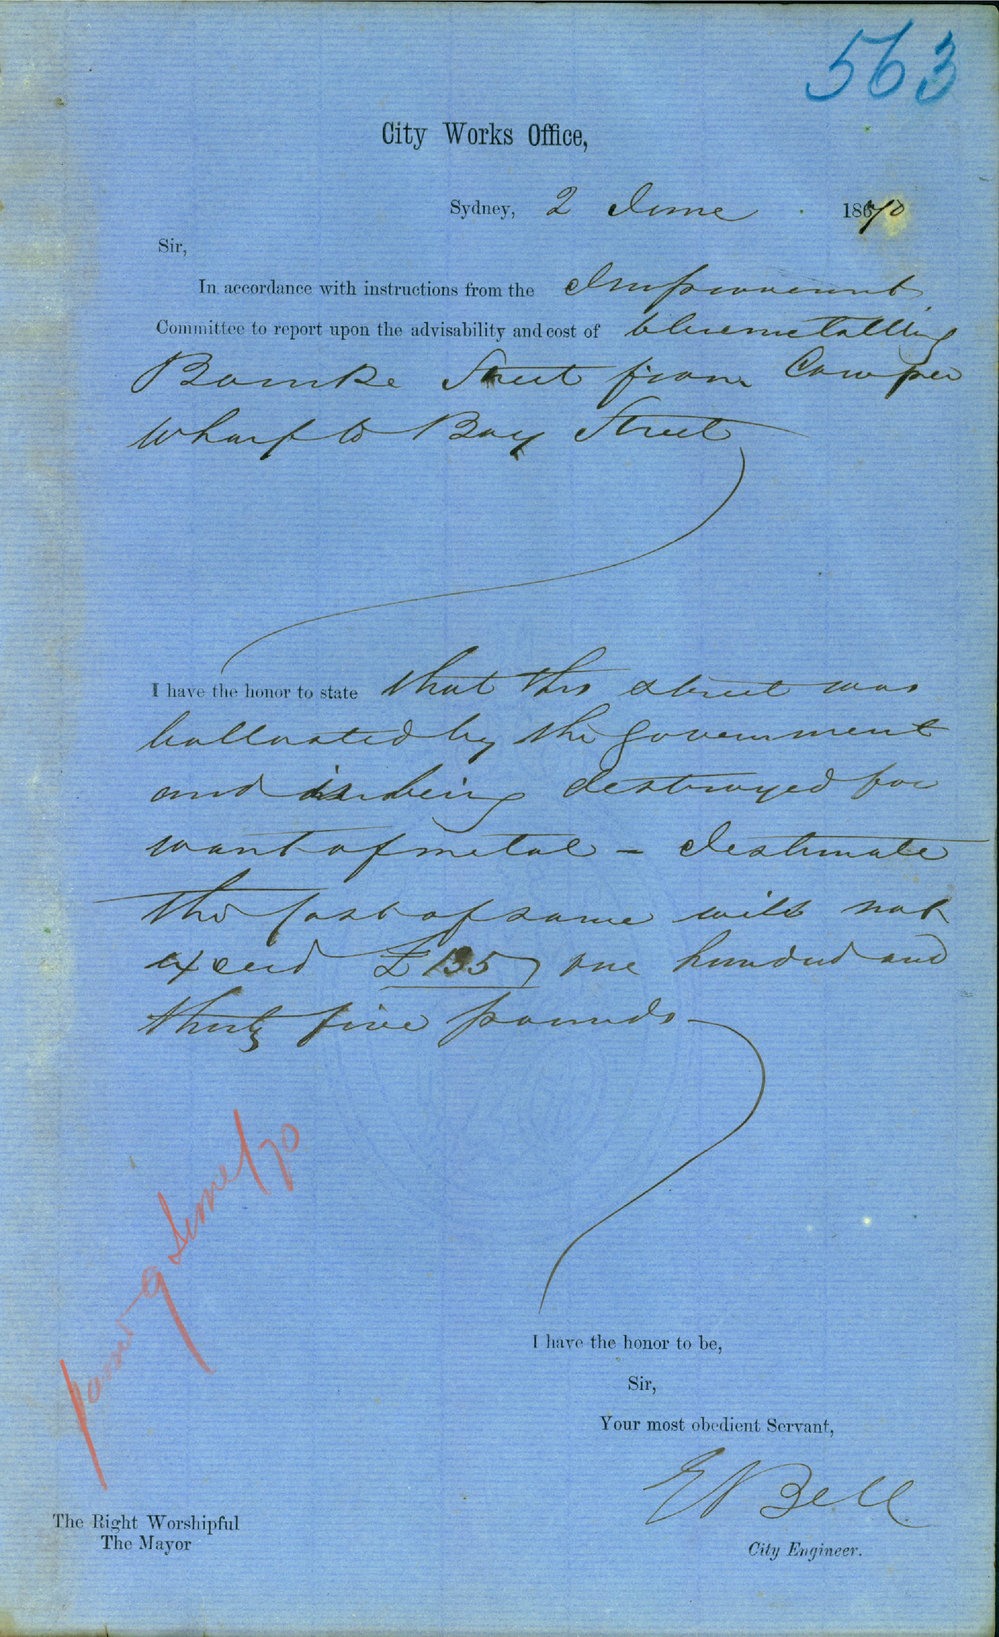 563
City Works Office,
Sydney, 2 June 1870
Sir,
In accordance with instructions from the Improvement
Committee to report upon the advisability and cost of bluemetalling
Bourke Street from Cowper
Wharf to Bay Street
I have the honor to state that this street was
ballasted by the Government
and is being destroyed for
want of metal – I estimate
the cost of same will not
exceed £135 one hundred and
thirty five pounds
passed 9 June/70
I have the honor to be,
Sir,
Your most obedient Servant,
E Bell
City Engineer.
The Right Worshipful
The Mayor